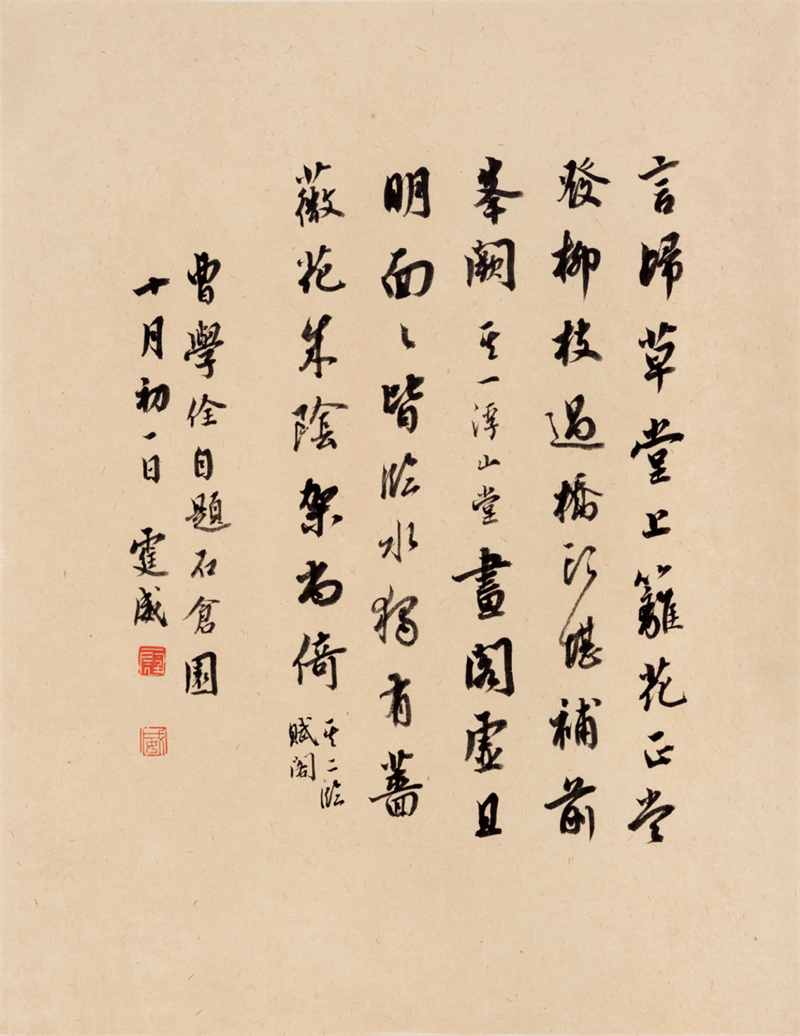 言歸草堂上籬花正堂
發柳枝過橋頭堪補前
峯闕其一浮山堂畫閣虛且
明面々皆臨水獨有薔
薇花朱陰架尚倚
其二臨
賦閣
曹學佺自題石倉園
十月初一日霆威
霆
威